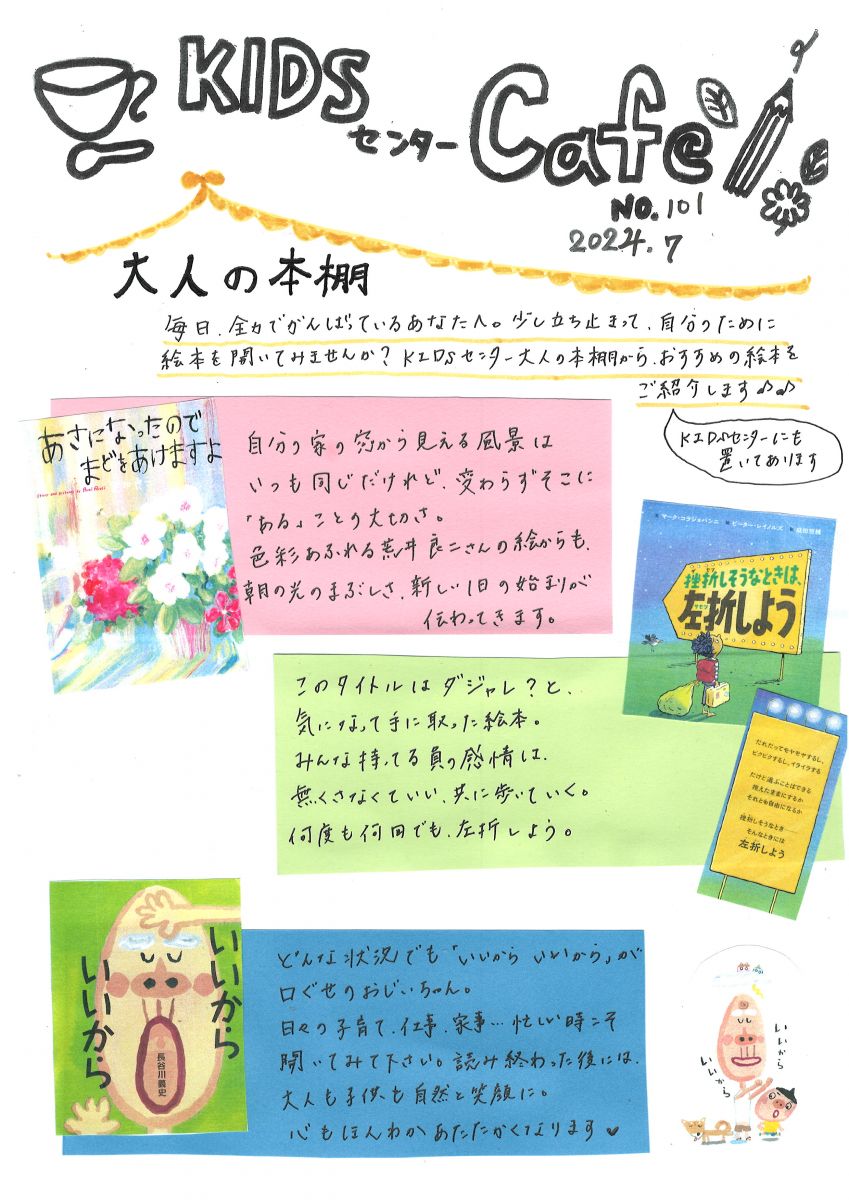 KIDS
センター Cafe
NO.101
2024.7
大人の本棚
毎日、全力でがんばっているあなたへ。少し立ち止まって、自分のために
絵本を開いてみませんか？KIDSセンター大人の本棚から、おすすめの絵本を
ご紹介します♪♪
KIDSセンターにも
置いてあります
あさになったので
まどをあけますよ
自分の家の窓から見える風景は
いつも同じだけれど、変わらずそこに
「ある」ことの大切さ。
色彩あふれる荒井良二さんの絵からも、
朝の光のまぶしさ、新しい1日の始まりが
伝わってきます。
マーク・コラジョバンニ ピーター・レイノルズ
挫折しそうなときは、
左折しよう
このタイトルはダジャレ？と、
気になって手に取った絵本。
みんな持ってる負の感情は、
無くさなくていい、共に歩いていく。
何度も何回でも、左折しよう。
だれだってモヤモヤするし、
ビクビクするし、イライラする
だけど選ぶことはできる
抱えたままにするか
それとも自由になるか
挫折しそうなとき
そんなときには
左折しよう
いいから
いいから
長谷川義史
どんな状況でも「いいから いいから」が
口ぐせのおじいちゃん。
日々の子育て、仕事、家事…忙しい時こそ
開いてみて下さい。読み終わった後には、
大人も子供も自然と笑顔に。
心もほんわかあたたかくなります♥
いいから
いいから